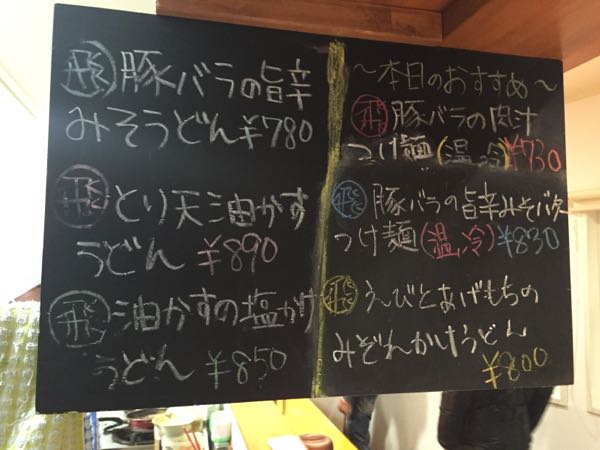 飛 豚バラの旨辛
みそうどん¥780
飛 とり天油かす
うどん ¥890
飛 油かすの塩がけ
うどん ¥850
〜本日のおすすめ〜
飛 豚バラの肉汁
つけ麺(温、冷)¥730
飛 豚バラの旨辛みそバター
つけ麺(温、冷)¥830
飛 えびとあげもちの
みぞれかけうどん
¥800